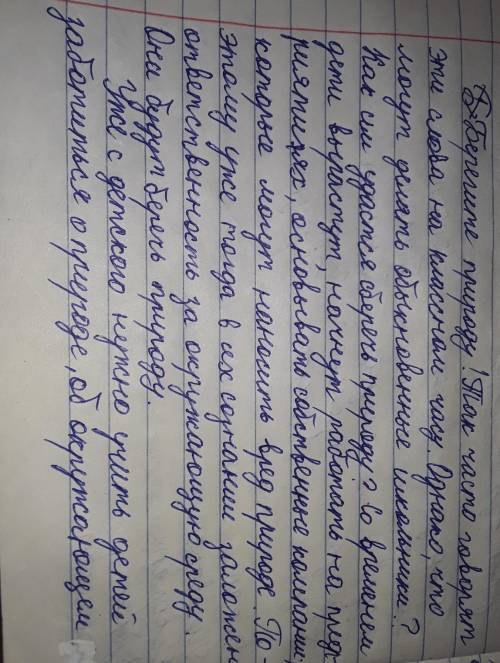 Берегите природу! Так часто говорят
эти слова на классном часу. Однако, что
могут делать обыкновенные школьники?
Как им удастся сберечь природу? Со временем
дети вырастут, начнут работать на пред-
риятиях, основывать собственные компании
которые могут наносить вред природе. По-
этому уже тогда в их сознании заложен
ответственность за окружающую среду.
Они будут беречь природу.
Уже с детского нужно учить детей
заботиться о природе, об окружающей